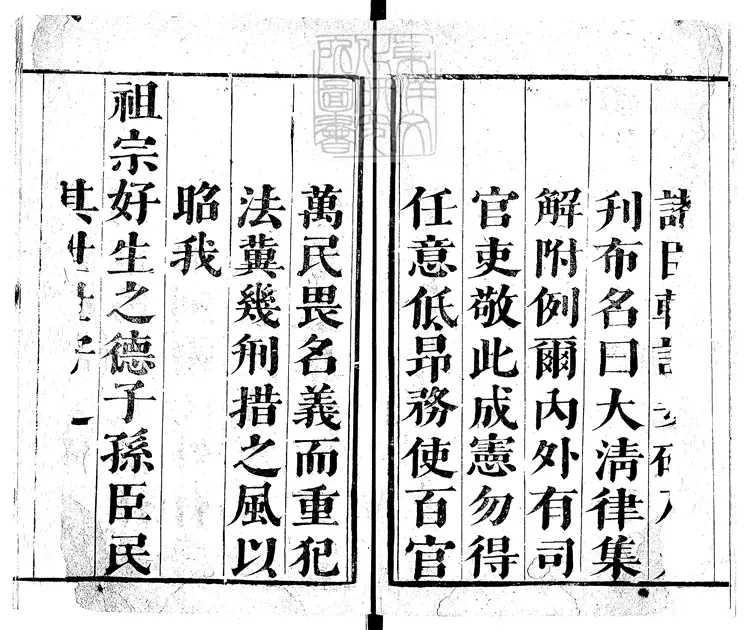 刋布名曰大淸律集
解附例爾內外有司
官吏敬此成憲勿得
任意低昻務使百官
萬民畏名義而重犯
法冀幾刑措之風以
昭我
祖宗好生之德子孫臣民
其世世